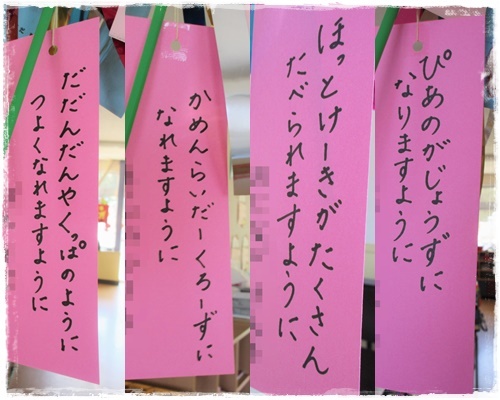 だだんだんやくっぱのように
つよくなれますように
かめんらいだーくろーずに
なれますように
ほっとけーきがたくさん
たべられますように
ぴあのがじょうずに
なりますように